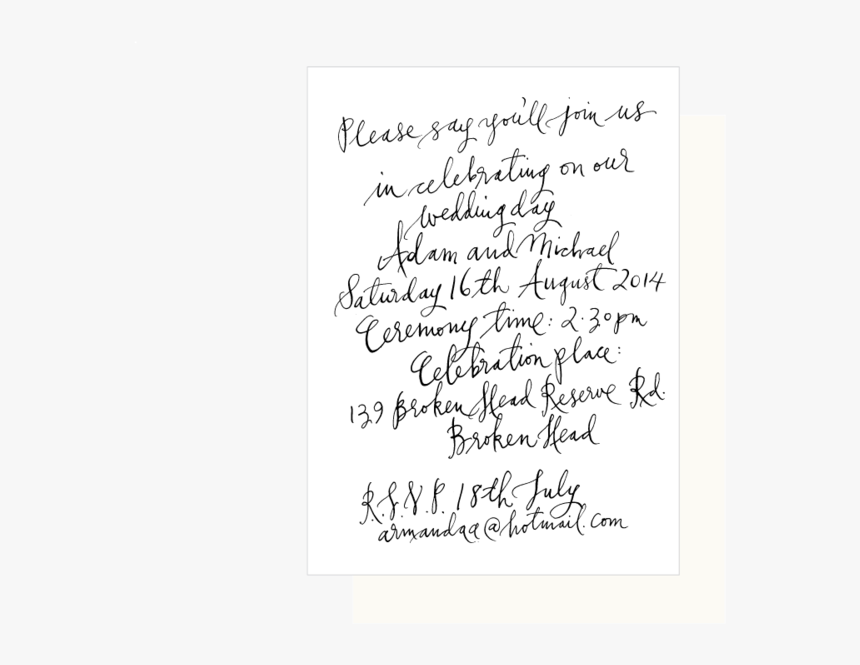 Please say you'll join us
in celebrating on our
wedding day
Adam and Michael
Saturday 16th August 2014
Ceremony time: 2.30pm
Celebration place:
139 Broken Head Reserve Rd.
Broken Head
R.S.V.P. 18th July
armandaa@hotmail.com